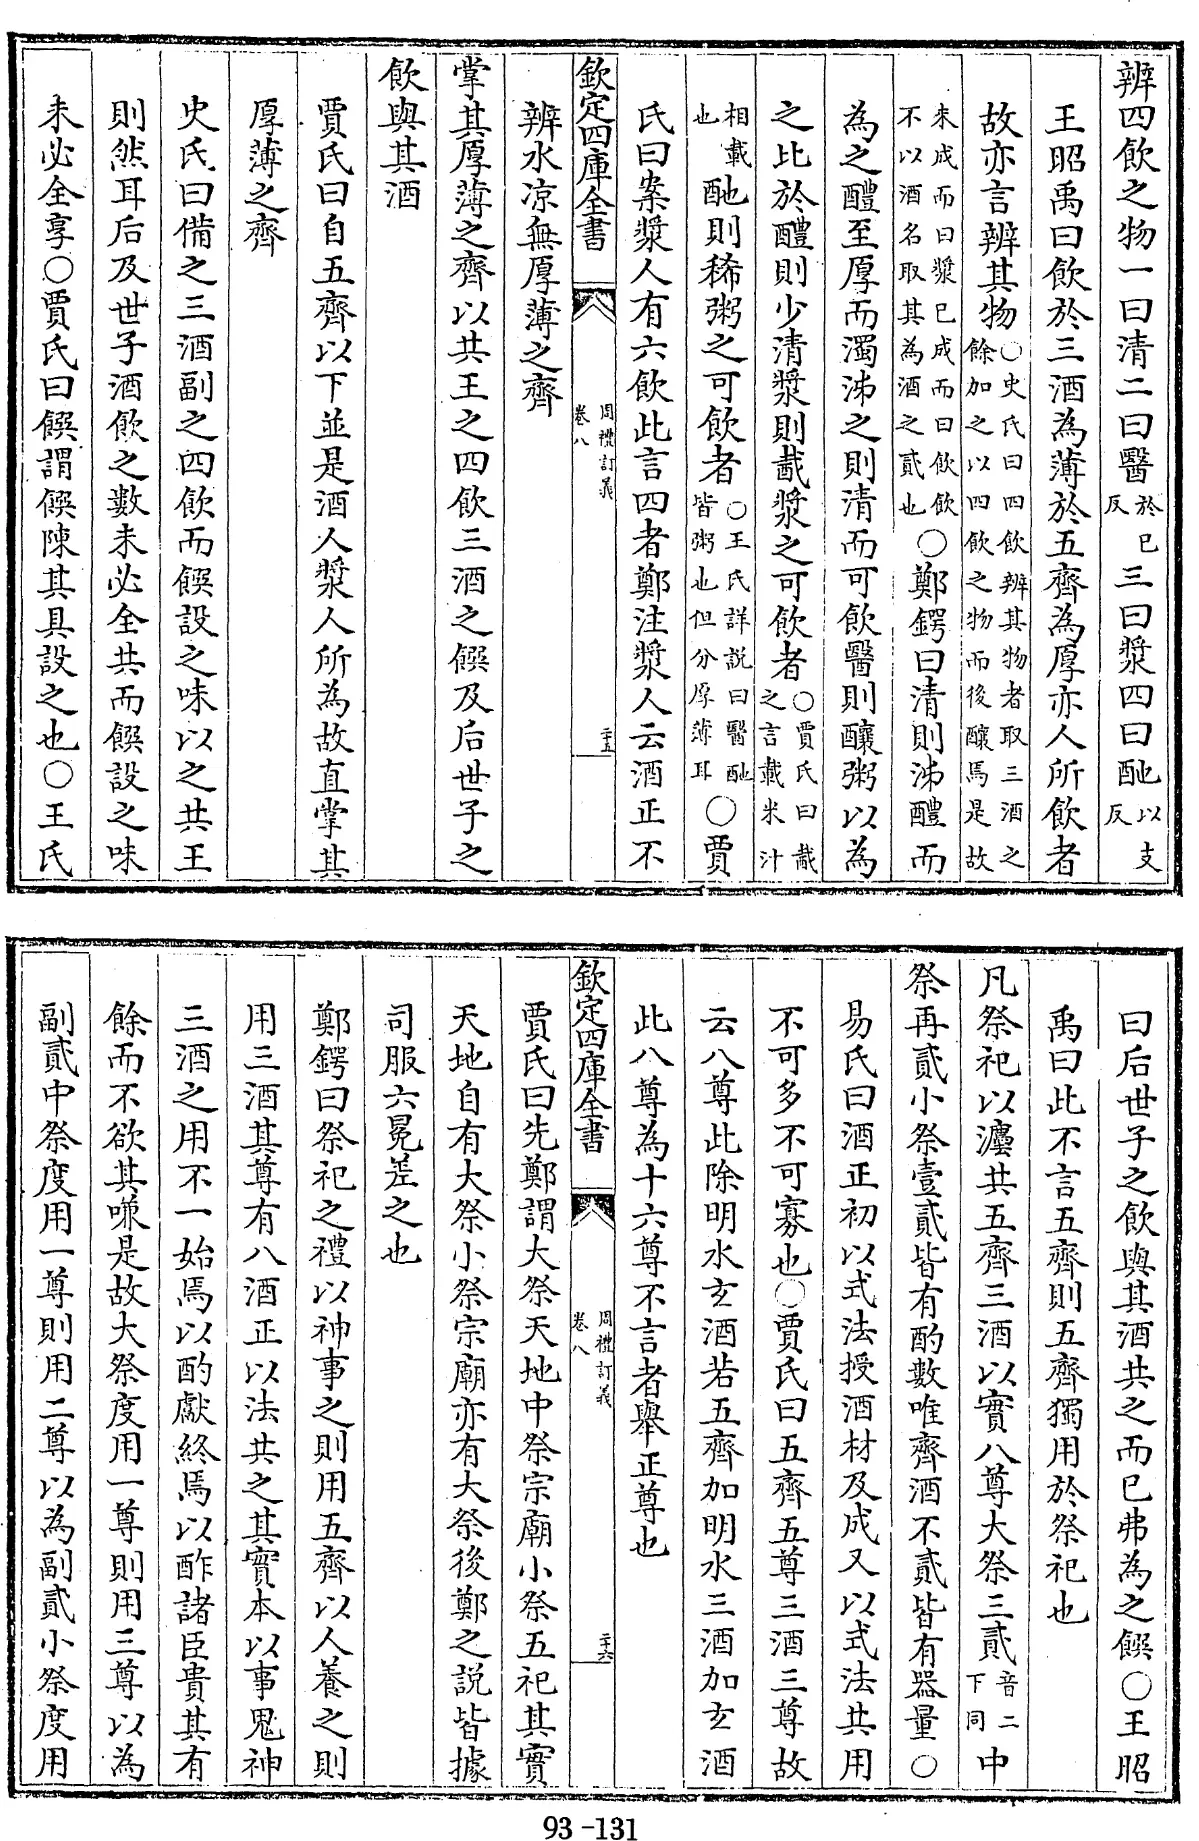 辨四飲之物一曰清二曰醫於已反三曰漿四曰酏以支反
王昭禹曰飲於三酒為薄於五齊為厚亦人所飲者
故亦言辨其物○史氏曰四飲辨其物者取三酒之餘加之以四飲之物而後釀焉是故
未成而曰漿已成而曰飲飲不以酒名取其為酒之貳也○鄭鍔曰清則泲醴而
為之醴至厚而濁泲之則清而可飲醫則釀粥以為
之比於醴則少清漿則酨漿之可飲者○賈氏曰酨之言載米汁
相載也酏則稀粥之可飲者○王氏詳說曰醫酏皆粥也但分厚薄耳○賈
氏曰案漿人有六飲此言四者鄭注漿人云酒正不
欽定四庫全書 周禮訂義 卷八 二十五
辨水凉無厚薄之齊
掌其厚薄之齊以共王之四飲三酒之饌及后世子之
飲與其酒
賈氏曰自五齊以下並是酒人漿人所為故直掌其
厚薄之齊
史氏曰備之三酒副之四飲而饌設之味以之共王
則然耳后及世子酒飲之數未必全共而饌設之味
未必全享○賈氏曰饌謂饌陳其具設之也○王氏
曰后世子之飲與其酒共之而已弗為之饌○王昭
禹曰此不言五齊則五齊獨用於祭祀也
凡祭祀以灋共五齊三酒以實八尊大祭三貳音二下同中
祭再貳小祭壹貳皆有酌數唯齊酒不貳皆有器量○
易氏曰酒正初以式法授酒材及成又以式法共用
不可多不可寡也○賈氏曰五齊五尊三酒三尊故
云八尊此除明水玄酒若五齊加明水三酒加玄酒
此八尊為十六尊不言者舉正尊也
欽定四庫全書 周禮訂義 卷八 二十六
賈氏曰先鄭謂大祭天地中祭宗廟小祭五祀其實
天地自有大祭小祭宗廟亦有大祭後鄭之說皆據
司服六冕差之也
鄭鍔曰祭祀之禮以神事之則用五齊以人養之則
用三酒其尊有八酒正以法共之其實本以事鬼神
三酒之用不一始焉以酌獻終焉以酢諸臣貴其有
餘而不欲其嗛是故大祭度用一尊則用三尊以為
副貳中祭度用一尊則用二尊以為副貳小祭度用
93-131